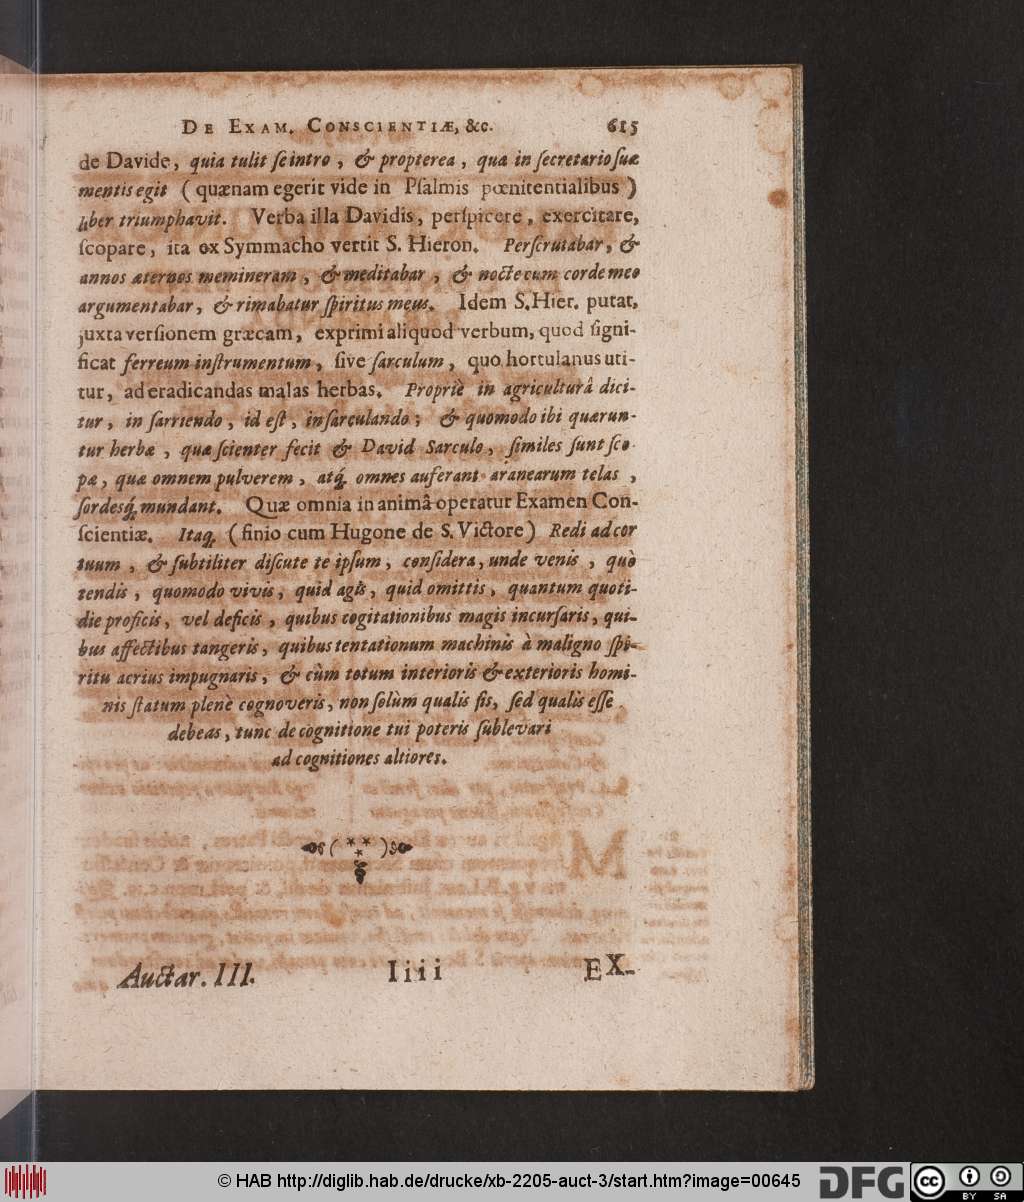 DE EXAM. CONSCIENTIÆ, &c. 615
de Davide, quia tulit se intro, & propterea, qua in secretario suæ
mentis egit (quænam egerit vide in Psalmis pœnitentialibus)
liber triumphavit. Verba illa Davidis, perspicere, exercitare,
scopare, ita ex Symmacho vertit S. Hieron. Perscrutabar, &
annos æternos memineram, & meditabar, & nocte cum corde meo
argumentabar, & rimabatur spiritus meus. Idem S. Hier. putat,
juxta versionem græcam, exprimi aliquod verbum, quod signi-
ficat ferreum instrumentum, sive sarculum, quo hortulanus uti-
tur, ad eradicandas malas herbas. Propriè in agriculturâ dici-
tur, in sarriendo, id est, in sarculando; & quomodo ibi quærun-
tur herbæ, quæ scienter fecit & David Sarculo, similes sunt sco-
pæ, quæ omnem pulverem, atq́, omnes auferant aranearum telas,
sordesq́, mundant. Quæ omnia in animâ operatur Examen Con-
scientiæ. Itaq, (finio cum Hugone de S. Victore) Redi ad cor
tuum, & subtiliter discute te ipsum, considera, unde venis, quò
tendis, quomodo vivis, quid agis, quid omittis, quantum quoti-
die proficis, vel deficis, quibus cogitationibus magis incursaris, qui-
bus affectibus tangeris, quibus tentationum machinis à maligno spi-
ritu acrius impugnaris, & cùm totum interioris & exterioris homi-
nis statum plenè cognoveris, non solùm qualis sis, sed qualis esse
debeas, tunc de cognitione tui poteris sublevari
ad cognitiones altiores.
Auctar. III. Iiii EX-
© HAB http://diglib.hab.de/drucke/xb-2205-auct-3/start.htm?image=00645 DFG cc BY SA